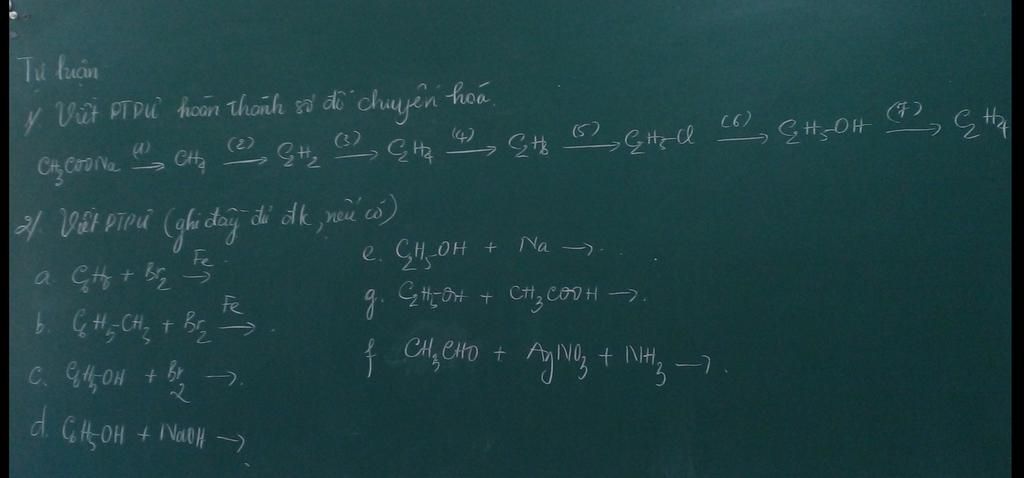 Tự luận
1/ Viết PTPƯ hoàn thành sơ đồ chuyển hoá.
CH₃COONa →(1) CH₄ →(2) C₂H₂ →(3) C₂H₄ →(4) C₂H₆ →(5) C₂H₅Cl →(6) C₂H₅OH →(7) C₂H₄
2/ Viết PTPƯ (ghi đầy đủ đk, nếu có)
a. C₆H₆ + Br₂ →Fe
b. C₆H₅-CH₃ + Br₂ →Fe.
c. C₆H₅OH + Br₂ →.
d. C₆H₅OH + NaOH →
e. C₂H₅OH + Na →.
g. C₂H₅OH + CH₃COOH →.
f CH₃CHO + AgNO₃ + NH₃ →.